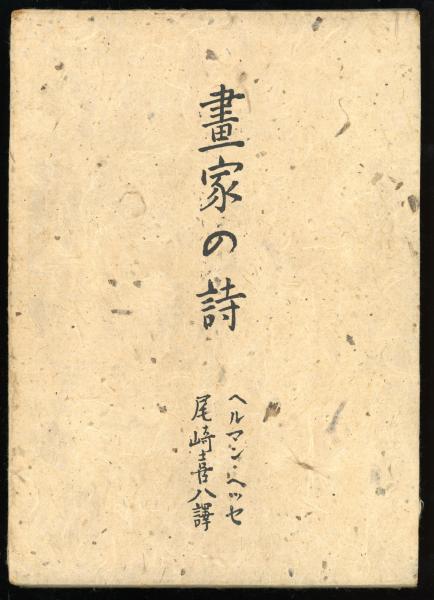 畫家の詩
ヘルマン・ヘッセ
尾崎喜八譯